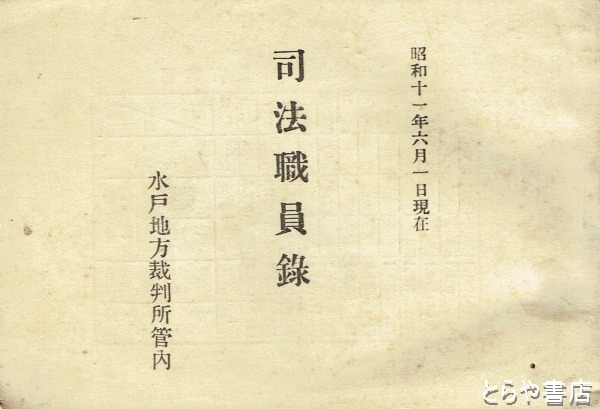 昭和十一年六月一日現在
司法職員錄
水戸地方裁判所管内
とらや書店